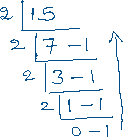 2 15
2 7 - 1
2 3 - 1
2 1 - 1
0 - 1